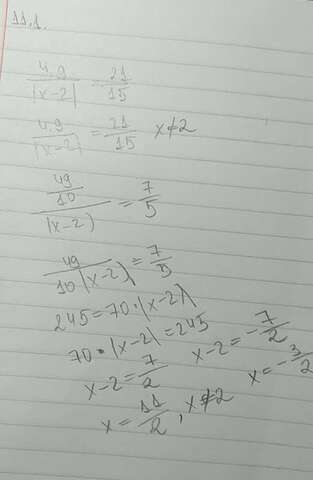 11.1.
4.9/|x-2| = 21/15
4.9/|x-2| = 21/15 x≠2
(49/10)/|x-2| = 7/5
49/10|x-2| = 7/5
245=70·|x-2|
70·|x-2|=245
x-2=7/2 x-2=-7/2
x=11/2, x≠2 x=-3/2